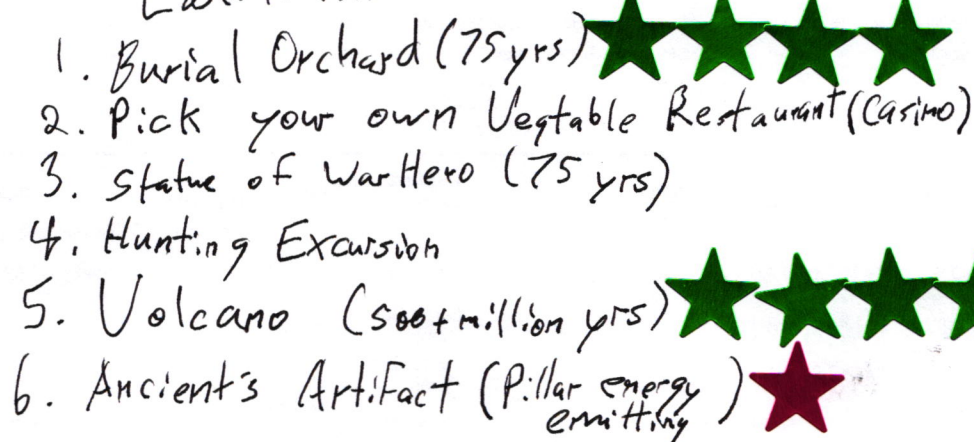 1. Burial Orchard (75 yrs)
2. Pick your own Vegtable Restaurant (Casino)
3. Statue of War Hero (75 yrs)
4. Hunting Excursion
5. Volcano (500+ million yrs)
6. Ancient's Artifact (Pillar energy emitting)